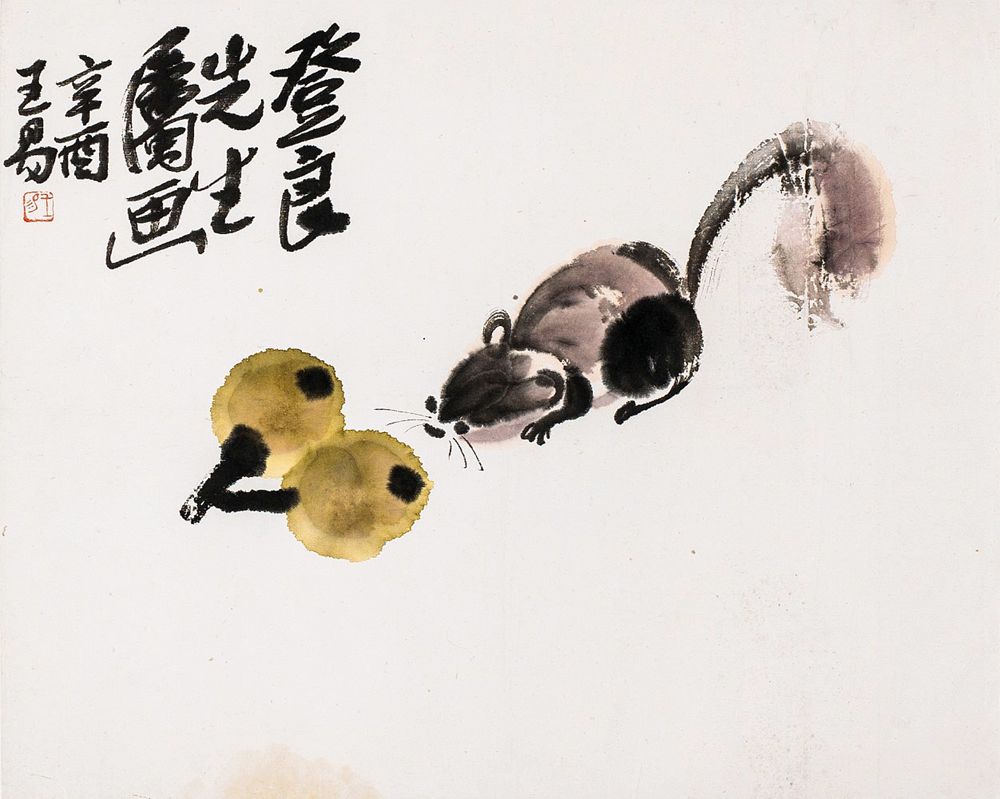 登良
先生
屬画
辛酉
王易